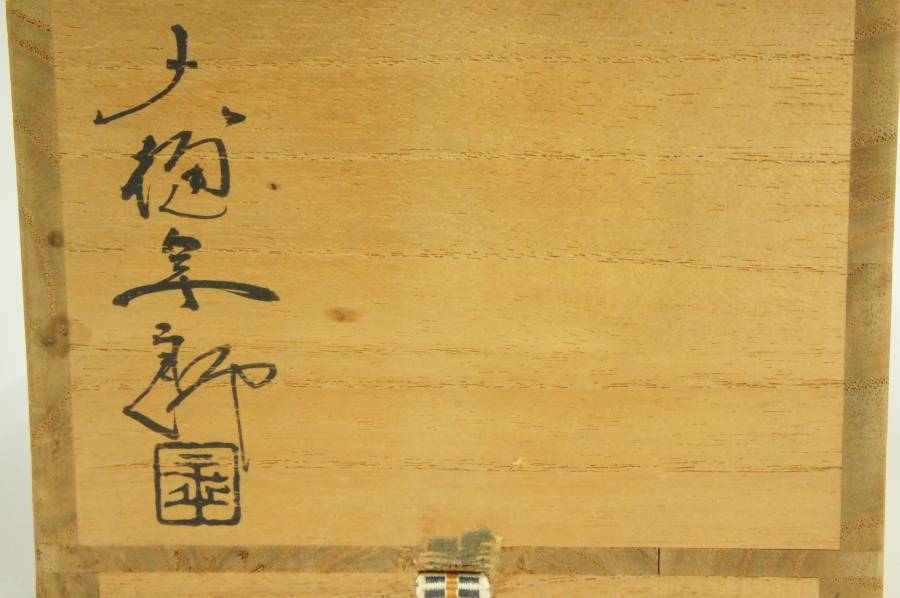 大樋年郎